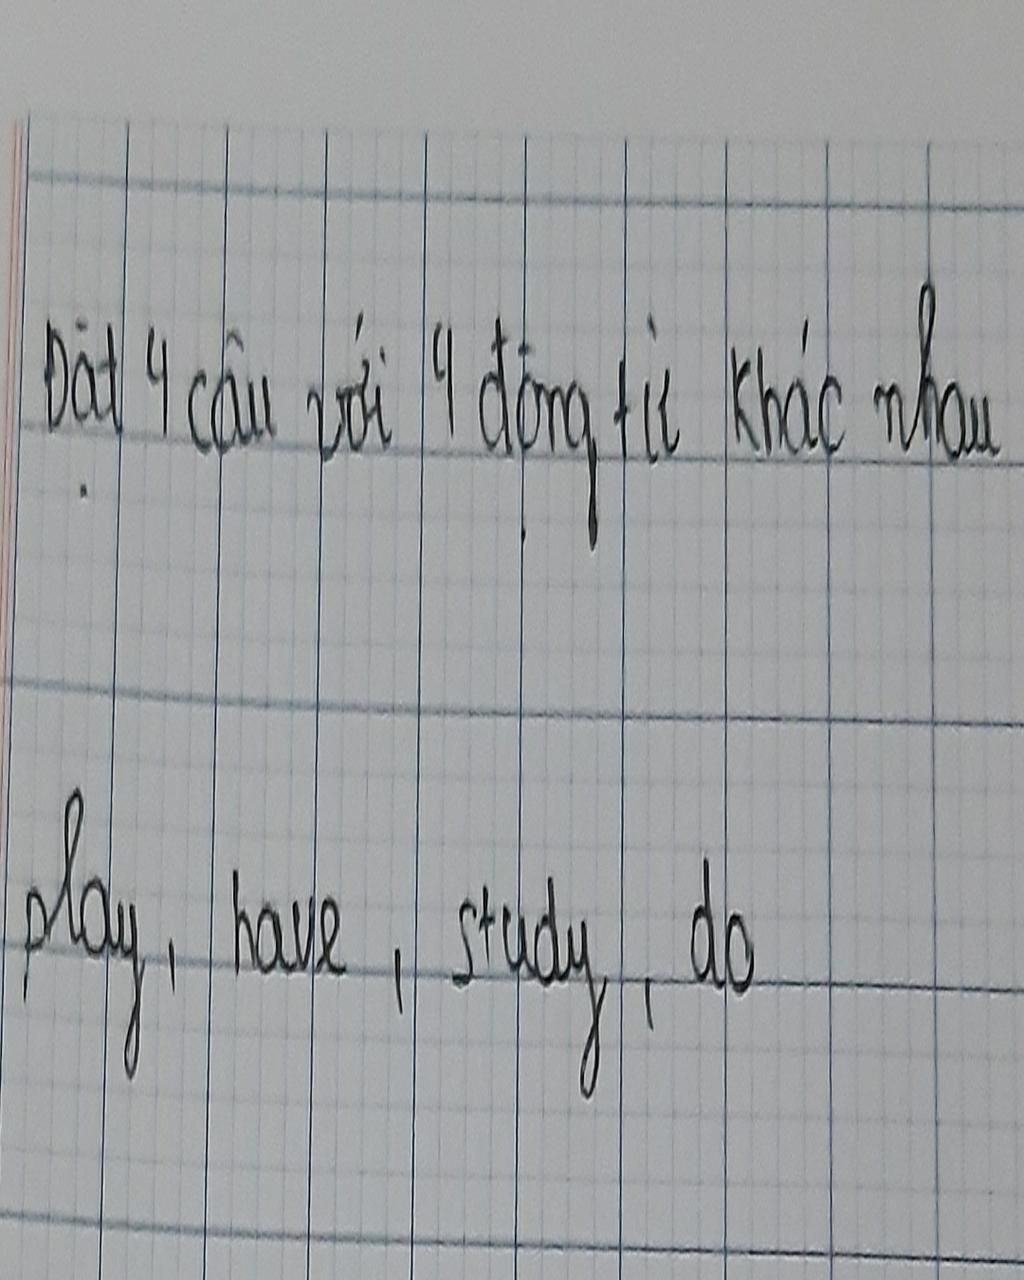 Đặt 4 câu với 4 động từ khác nhau
play, have, study, do